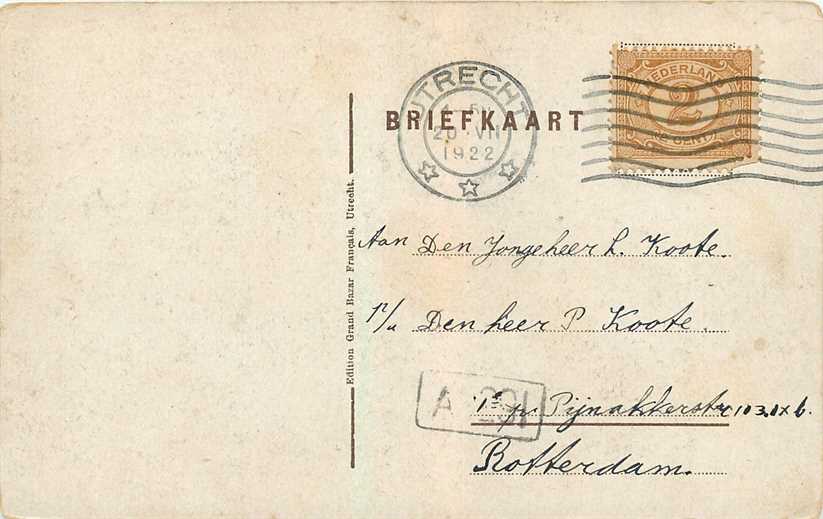 UTRECHT
20 VII
1922
BRIEFKAART
NEDERLAND
2
CENT
Edition Grand Bazar Français, Utrecht.
Aan Den Jongeheer L. Koote.
p/a Den heer P Koote.
A 291
Pijnakkerstr 103
Rotterdam.